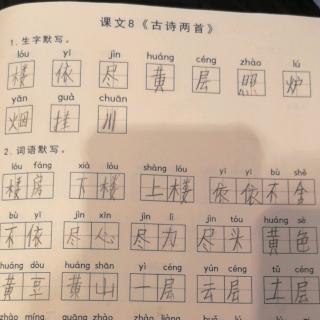 课文8《古诗两首》
1. 生字默写。
lóu yī jìn huáng céng zhào lú
楼 依 尽 黄 层 照 炉
yān guà chuān
烟 挂 川
2. 词语默写。
lóu fáng xià lóu shàng lóu yī yī bù shě
楼房 下楼 上楼 依依不舍
bù yī jìn xīn jìn lì jìn tóu huáng sè
不依 尽心 尽力 尽头 黄色
huáng dòu huáng shān yì céng yún céng tǔ céng
黄豆 黄山 一层 云层 土层